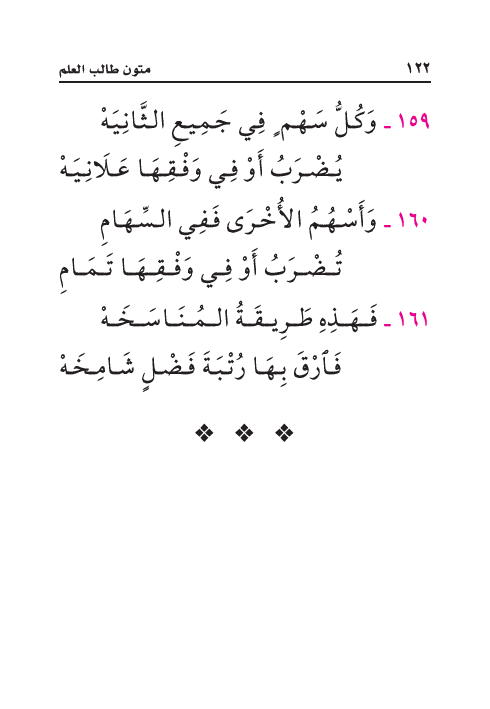 ١٢٢ متون طالب العلم
١٥٩ ـ وَكُلُّ سَهْمٍ فِي جَمِيعِ الثَّانِيَهْ
يُضْرَبُ أَوْ فِي وَفْقِهَا عَلَانِيَهْ
١٦٠ ـ وَأَسْهُمُ الأُخْرَى فَفِي السِّهَامِ
تُضْرَبُ أَوْ فِي وَفْقِهَا تَمَامِ
١٦١ ـ فَهَذِهِ طَرِيقَةُ المُنَاسَخَهْ
فَٱرْقَ بِهَا رُتْبَةَ فَضْلٍ شَامِخَهْ